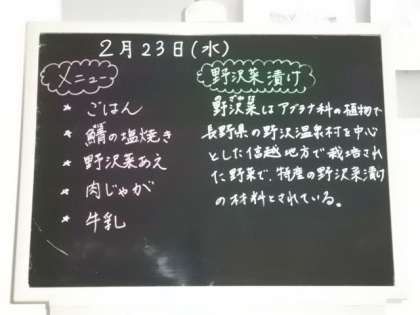 2月23日(水)
メニュー
* ごはん
* 鯖の塩焼き
* 野沢菜あえ
* 肉じゃが
* 牛乳
野沢菜漬け
野沢菜はアブラナ科の植物で
長野県の野沢温泉村を中心
とした信越地方で栽培され
た野菜で、特産の野沢菜漬け
の材料とされている。